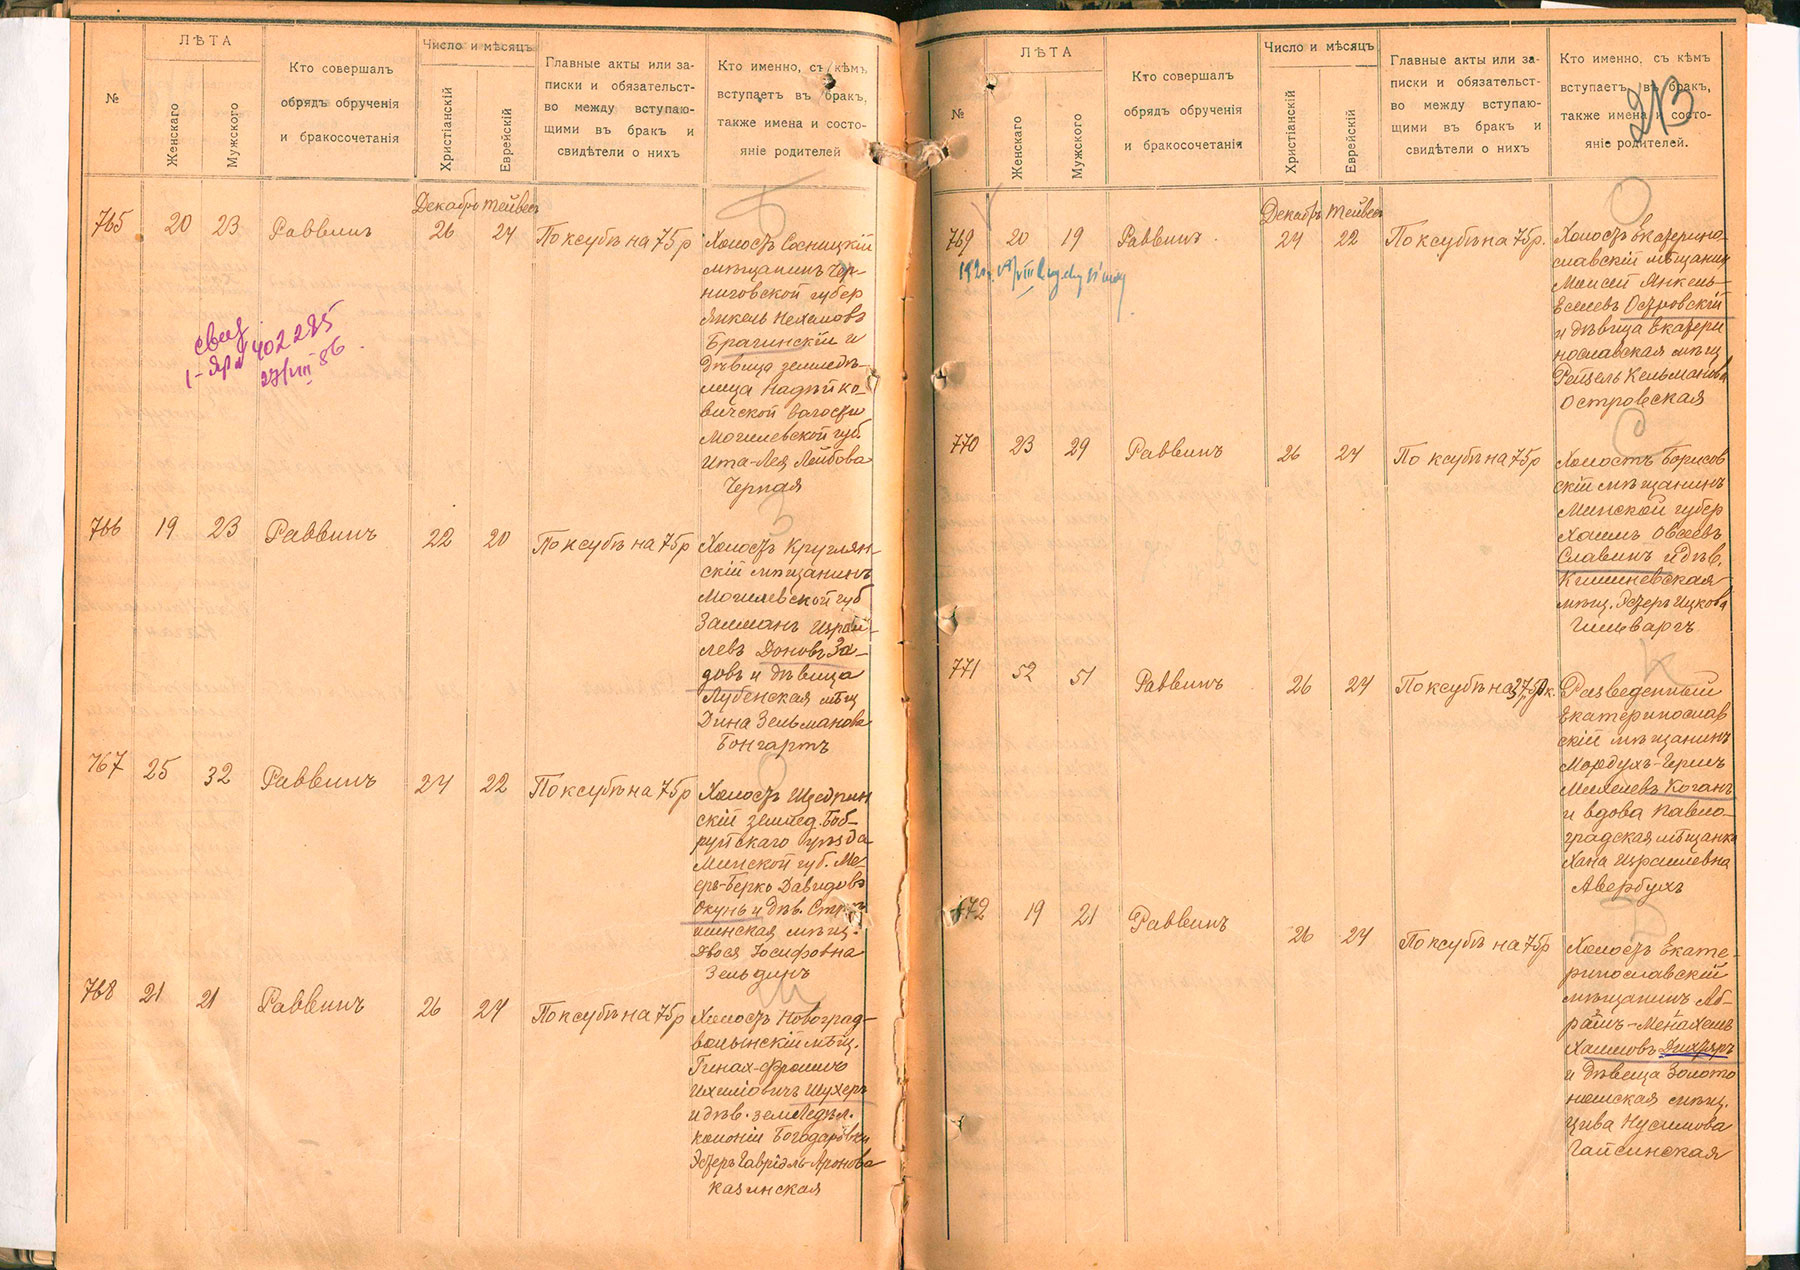 №
ЛѢТА
Женскаго
Мужского
Кто совершалъ
обрядъ обрученія
и бракосочетанія
Число и мѣсяцъ
Христіанскій
Еврейскій
Главные акты или за-
писки и обязательст-
во между вступаю-
щими въ бракъ и
свидѣтели о нихъ
Кто именно, съ кѣмъ
вступаетъ въ бракъ,
также имена и состо-
яніе родителей
Декабрь Тейвесъ
765 20 23 Раввинъ 26 24 По ксубѣ на 75 р
Б
Холостъ Сосницкій
мѣщанинъ Чер-
ниговской губер
Янкель Нехемовъ
Брагинскій и
дѣвица землед-
ѣлица Надѣйко-
вичской волости
Могилевской губ.
Ита-Лея Лейбова
Черная
402285
27/VIII 86
766 19 23 Раввинъ 22 20 По ксубѣ на 75 р
З
Холостъ Круглян-
скій мѣщанинъ
Могилевской губ
Залманъ Израй-
левъ Доновъ За-
довъ и дѣвица
Лубенская мѣщ
Дина Зельманова
Бонгартъ
767 25 32 Раввинъ 24 22 По ксубѣ на 75 р
О
Холостъ Щедрин
скій землед. Боб-
руйскаго уѣзда
Минской губ. Ме-
еръ-Берко Давидовъ
Окунь и дѣв.
мѣщ.
Двося Іосифовна
Зельдинъ
768 21 21 Раввинъ 26 24 По ксубѣ на 75 р
Ш
Холостъ Новоград-
волынскій мѣщ.
Пинах-Фроимъ
Ихиловичъ Шухеръ
и дѣв. земледѣл.
колоніи Богодаровки
Эстеръ Гавріэль-Аронова
Казинская
№
ЛѢТА
Женскаго
Мужского
Кто совершалъ
обрядъ обрученія
и бракосочетанія
Число и мѣсяцъ
Христіанскій
Еврейскій
Главные акты или за-
писки и обязательст-
во между вступаю-
щими въ бракъ и
свидѣтели о нихъ
Кто именно, съ кѣмъ
вступаетъ въ бракъ,
также имена и состо-
яніе родителей.
213
Декабрь Тейвесъ
769 20 19 Раввинъ 24 22 По ксубѣ на 75 р.
О
Холостъ Екатерино-
славскій мѣщанинъ
Моисей Янкель-
Еселевъ Островскій
и дѣвица Екатери
нославская мѣщ
Рейзель Кельманова
Островская
770 23 29 Раввинъ 26 24 По ксубѣ на 75 р
С
Холостъ Борисов
скій мѣщанинъ
Минской губер
Хаимъ Овсеевъ
Славинъ и дѣв.
Кишиневская
мѣщ. Эстеръ Ицкова
Гимеваргъ
771 52 51 Раввинъ 26 24
К
Разведенный
Екатеринослав
скій мѣщанинъ
Мордухъ-Гершъ
Менделевъ Коганъ
и вдова Павло-
градская мѣщанка
Хана Израилевна
Авербухъ
772 19 21 Раввинъ 26 24 По ксубѣ на 75 р
Д
Холостъ Екате-
ринославскій
мѣщанинъ Аб-
рамъ-Менахемъ
Хаимовъ Дихтяръ
и дѣвица Золото
ношская мѣщ.
Цива Нусимова
Гайсинская